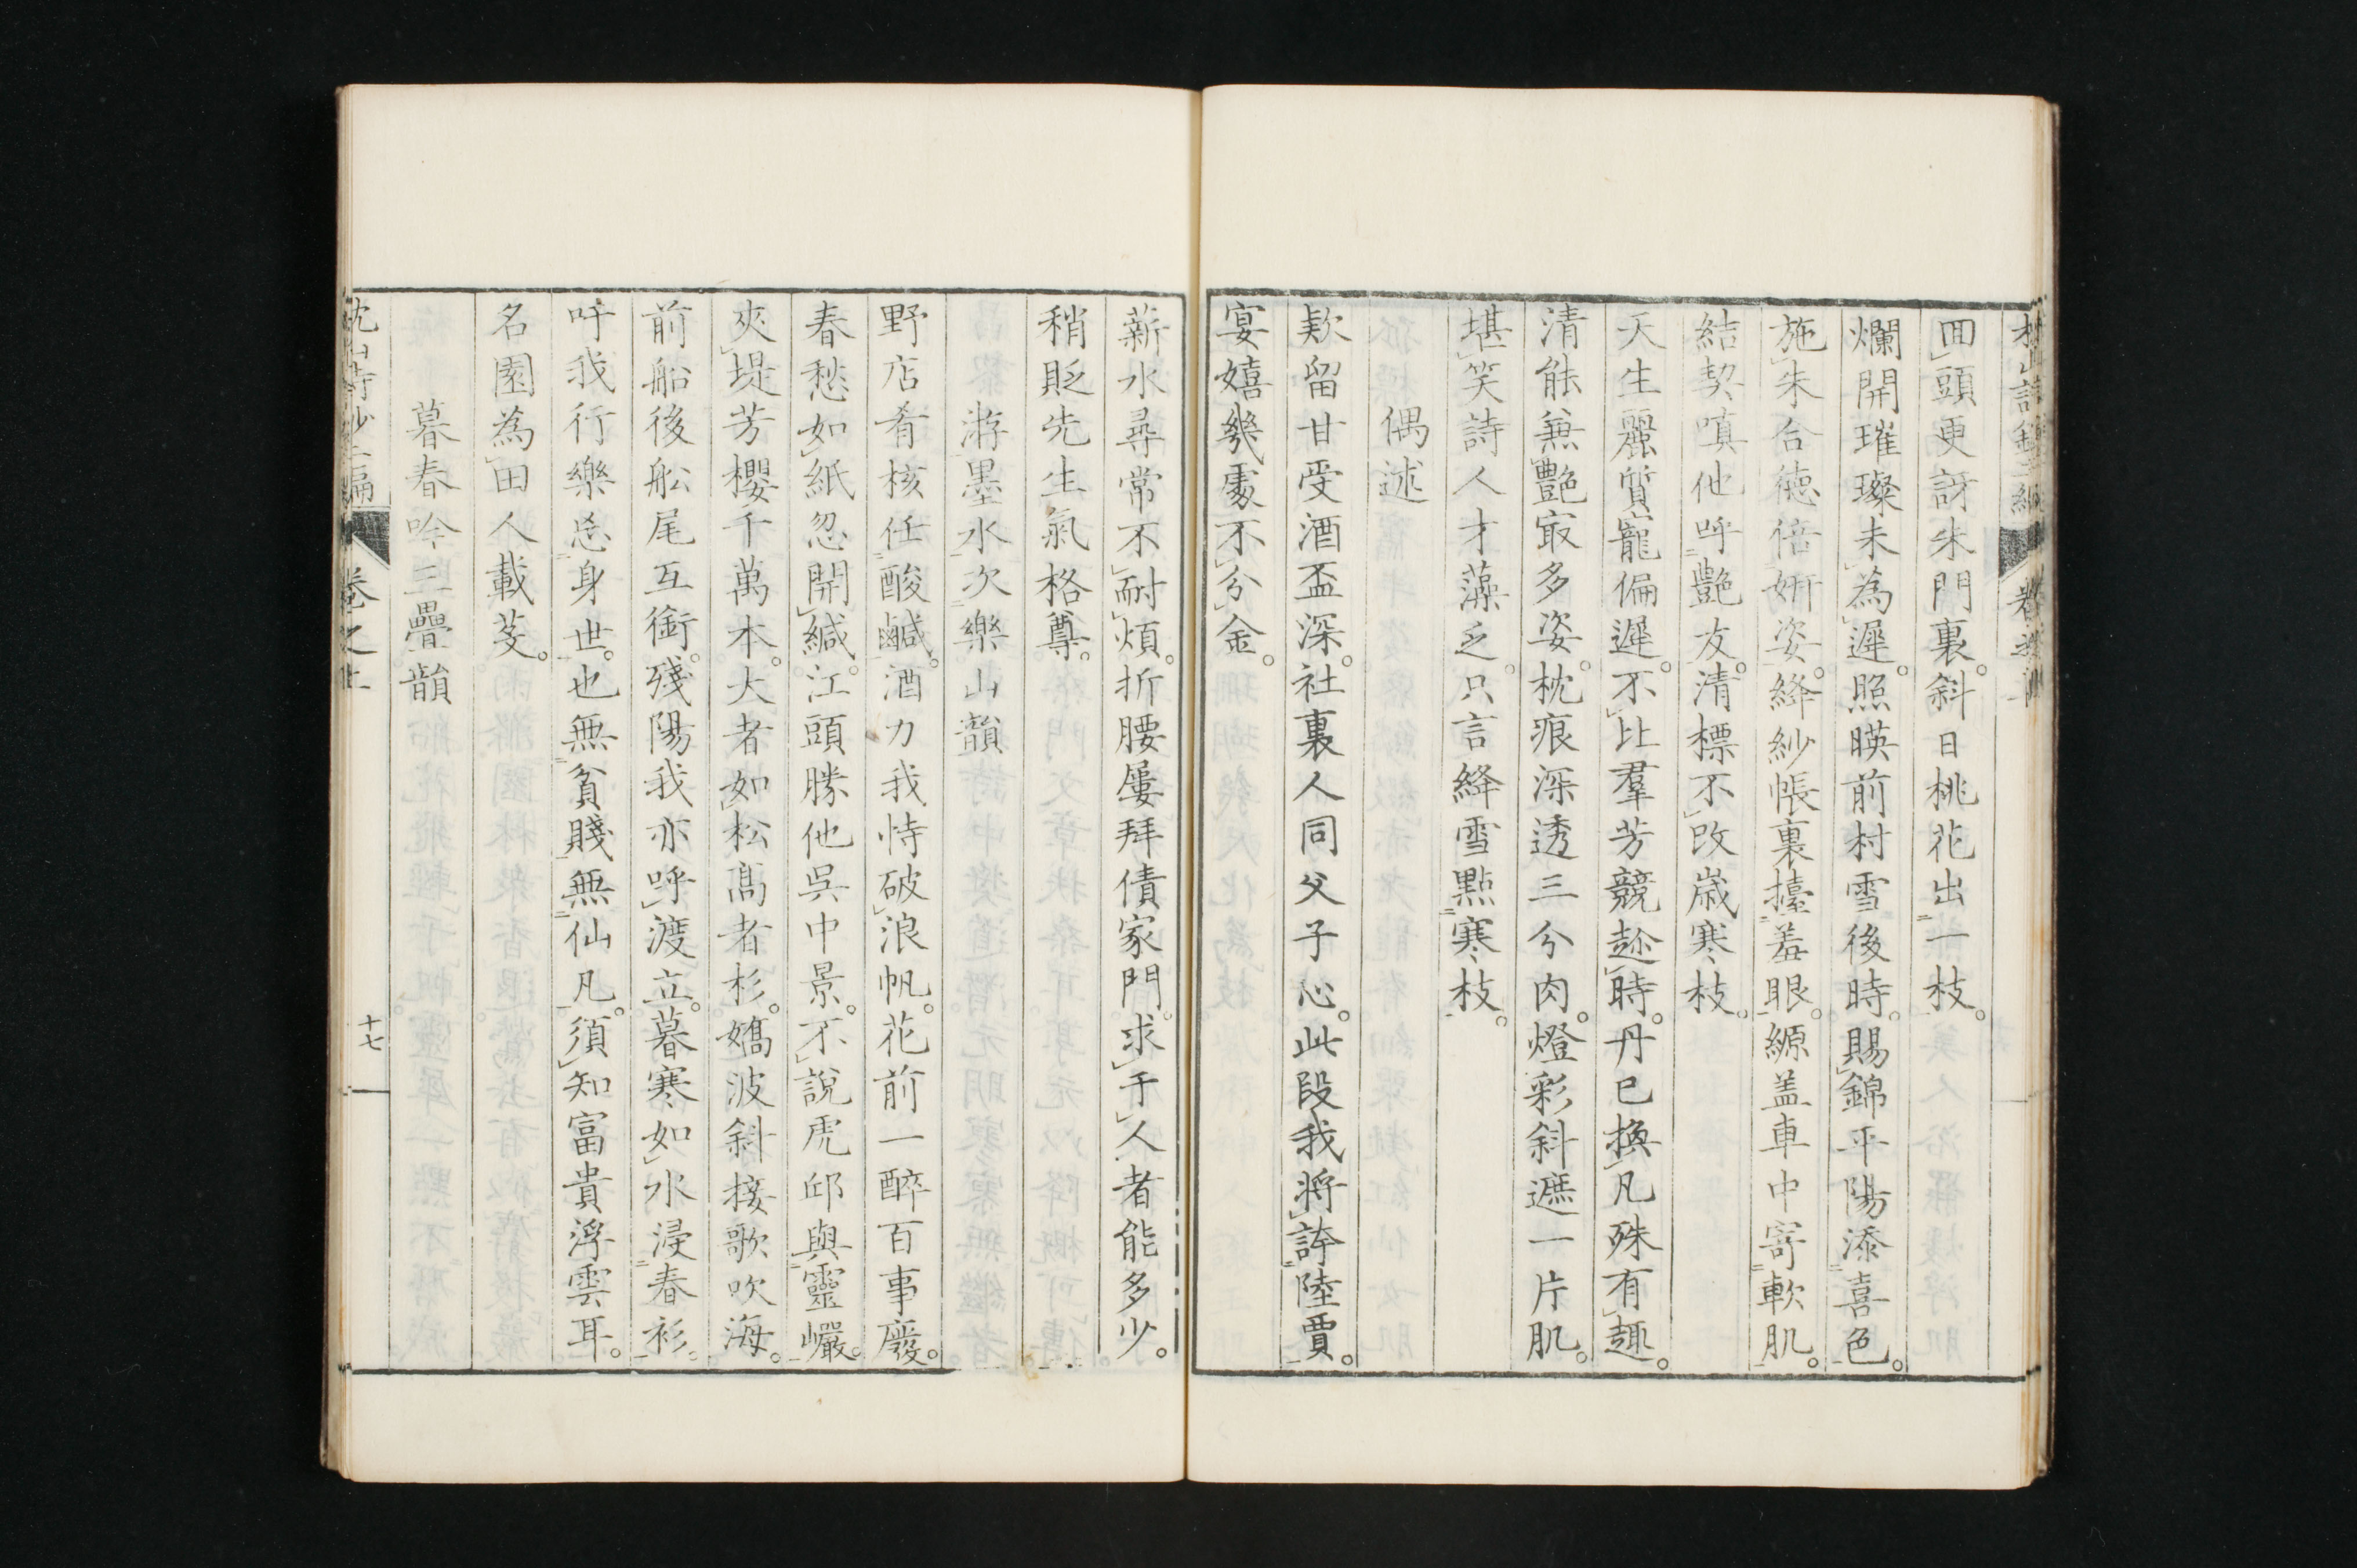 回頭更訝朱門裏。斜日桃花出一枝。
爛開璀璨未為遲。照暎前村雪後時。賜錦平陽添喜色。
施朱合德倍妍姿。絳紗帳裏擡羞眼。縹盖車中寄軟肌。
結契嗔他呼艶友。清標不改歲寒枝。
天生麗質寵偏遲。不比羣芳競趂時。丹已換凡殊有趣。
清能兼艶㝡多姿。枕痕深透三分肉。燈彩斜遮一片肌。
堪笑詩人才藻乏。只言絳雪點寒枝。
偶述
欵留甘受酒盃深。社裏人同父子心。此段我將誇陸賈。
宴嬉幾處不分金。
薪水尋常不耐煩。折腰屢拜債家門。求于人者能多少。
稍貶先生氣格尊。
游墨水次樂山韻
野店肴核任酸鹹。酒力我恃破浪帆。花前一醉百事廢。
春愁如紙忽開緘。江頭勝他呉中景。不說虎邱與靈巗。
夾堤芳櫻千萬本。大者如松髙者杉。嬌波斜接歌吹海。
前船後舩尾互銜。殘陽我亦呼渡立。暮寒如水浸春衫。
吁我行樂忘身世。也無貧賤無仙凡。須知富貴浮雲耳。
名園為田人載芟。
暮春吟三疊韻
枕山詩鈔三編 卷之上 十七